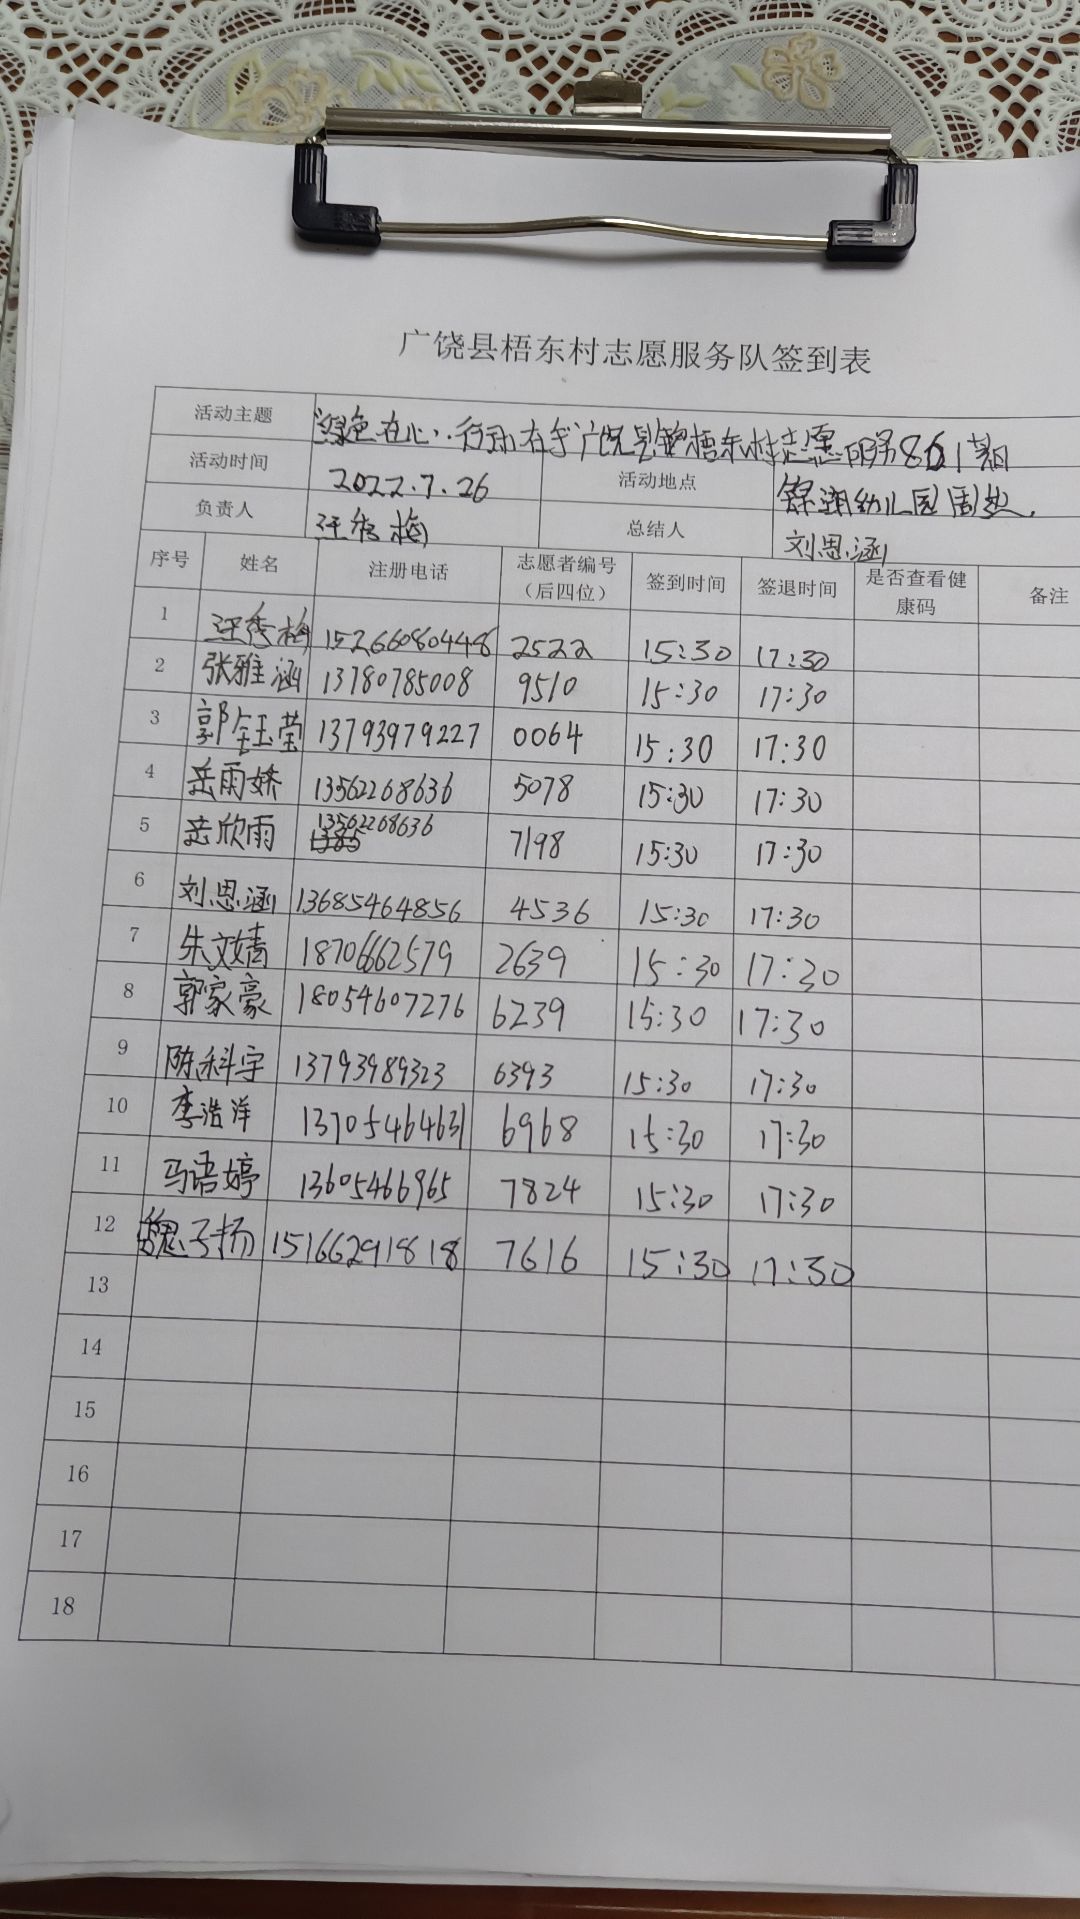 广饶县梧东村志愿服务队签到表
活动主题 绿色在心 行动在手广饶县梧东村志愿服务队第861期
活动时间 2022.7.26 活动地点 锦湖幼儿园周边.
负责人 汪秀梅 总结人 刘思涵
序号 姓名 注册电话 志愿者编号（后四位） 签到时间 签退时间 是否查看健康码 备注
1 汪秀梅 15266080448 2522 15:30 17:30
2 张雅涵 13780785008 9510 15:30 17:30
3 郭钰莹 13793979227 0064 15:30 17:30
4 岳雨娇 13562268636 5078 15:30 17:30
5 岳欣雨 13562268636 7198 15:30 17:30
6 刘思涵 13685464856 4536 15:30 17:30
7 朱文婧 18706662579 2639 15:30 17:30
8 郭家豪 18054607276 6239 15:30 17:30
9 陈科宇 13793989323 6393 15:30 17:30
10 李浩洋 13705464631 6968 15:30 17:30
11 马语婷 13605466965 7824 15:30 17:30
12 魏子扬 15166291818 7616 15:30 17:30
13
14
15
16
17
18